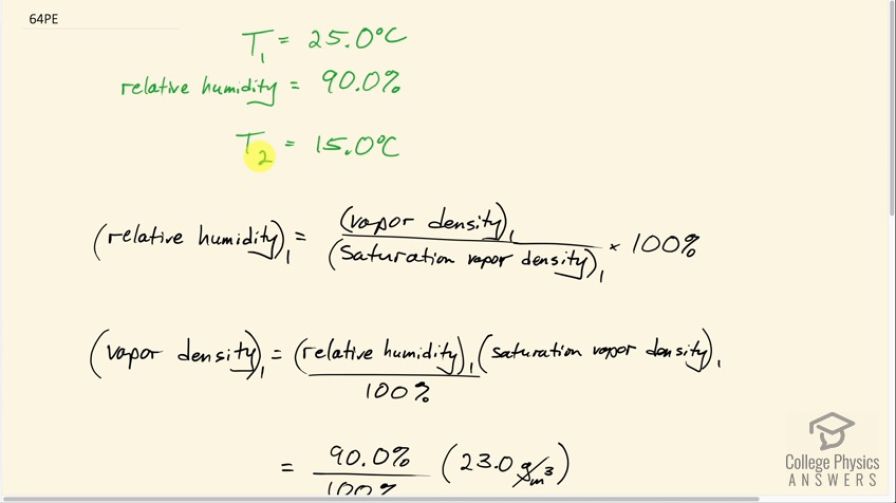 64PE
T₁ = 25.0°C
relative humidity = 90.0%
T₂ = 15.0°C
(relative humidity)₁ = (vapor density)₁ / (saturation vapor density)₁ × 100%
(vapor density)₁ = (relative humidity)₁ (saturation vapor density)₁
100%
= 90.0% (23.0 g/m³)
100%
College Physics
ANSWERS